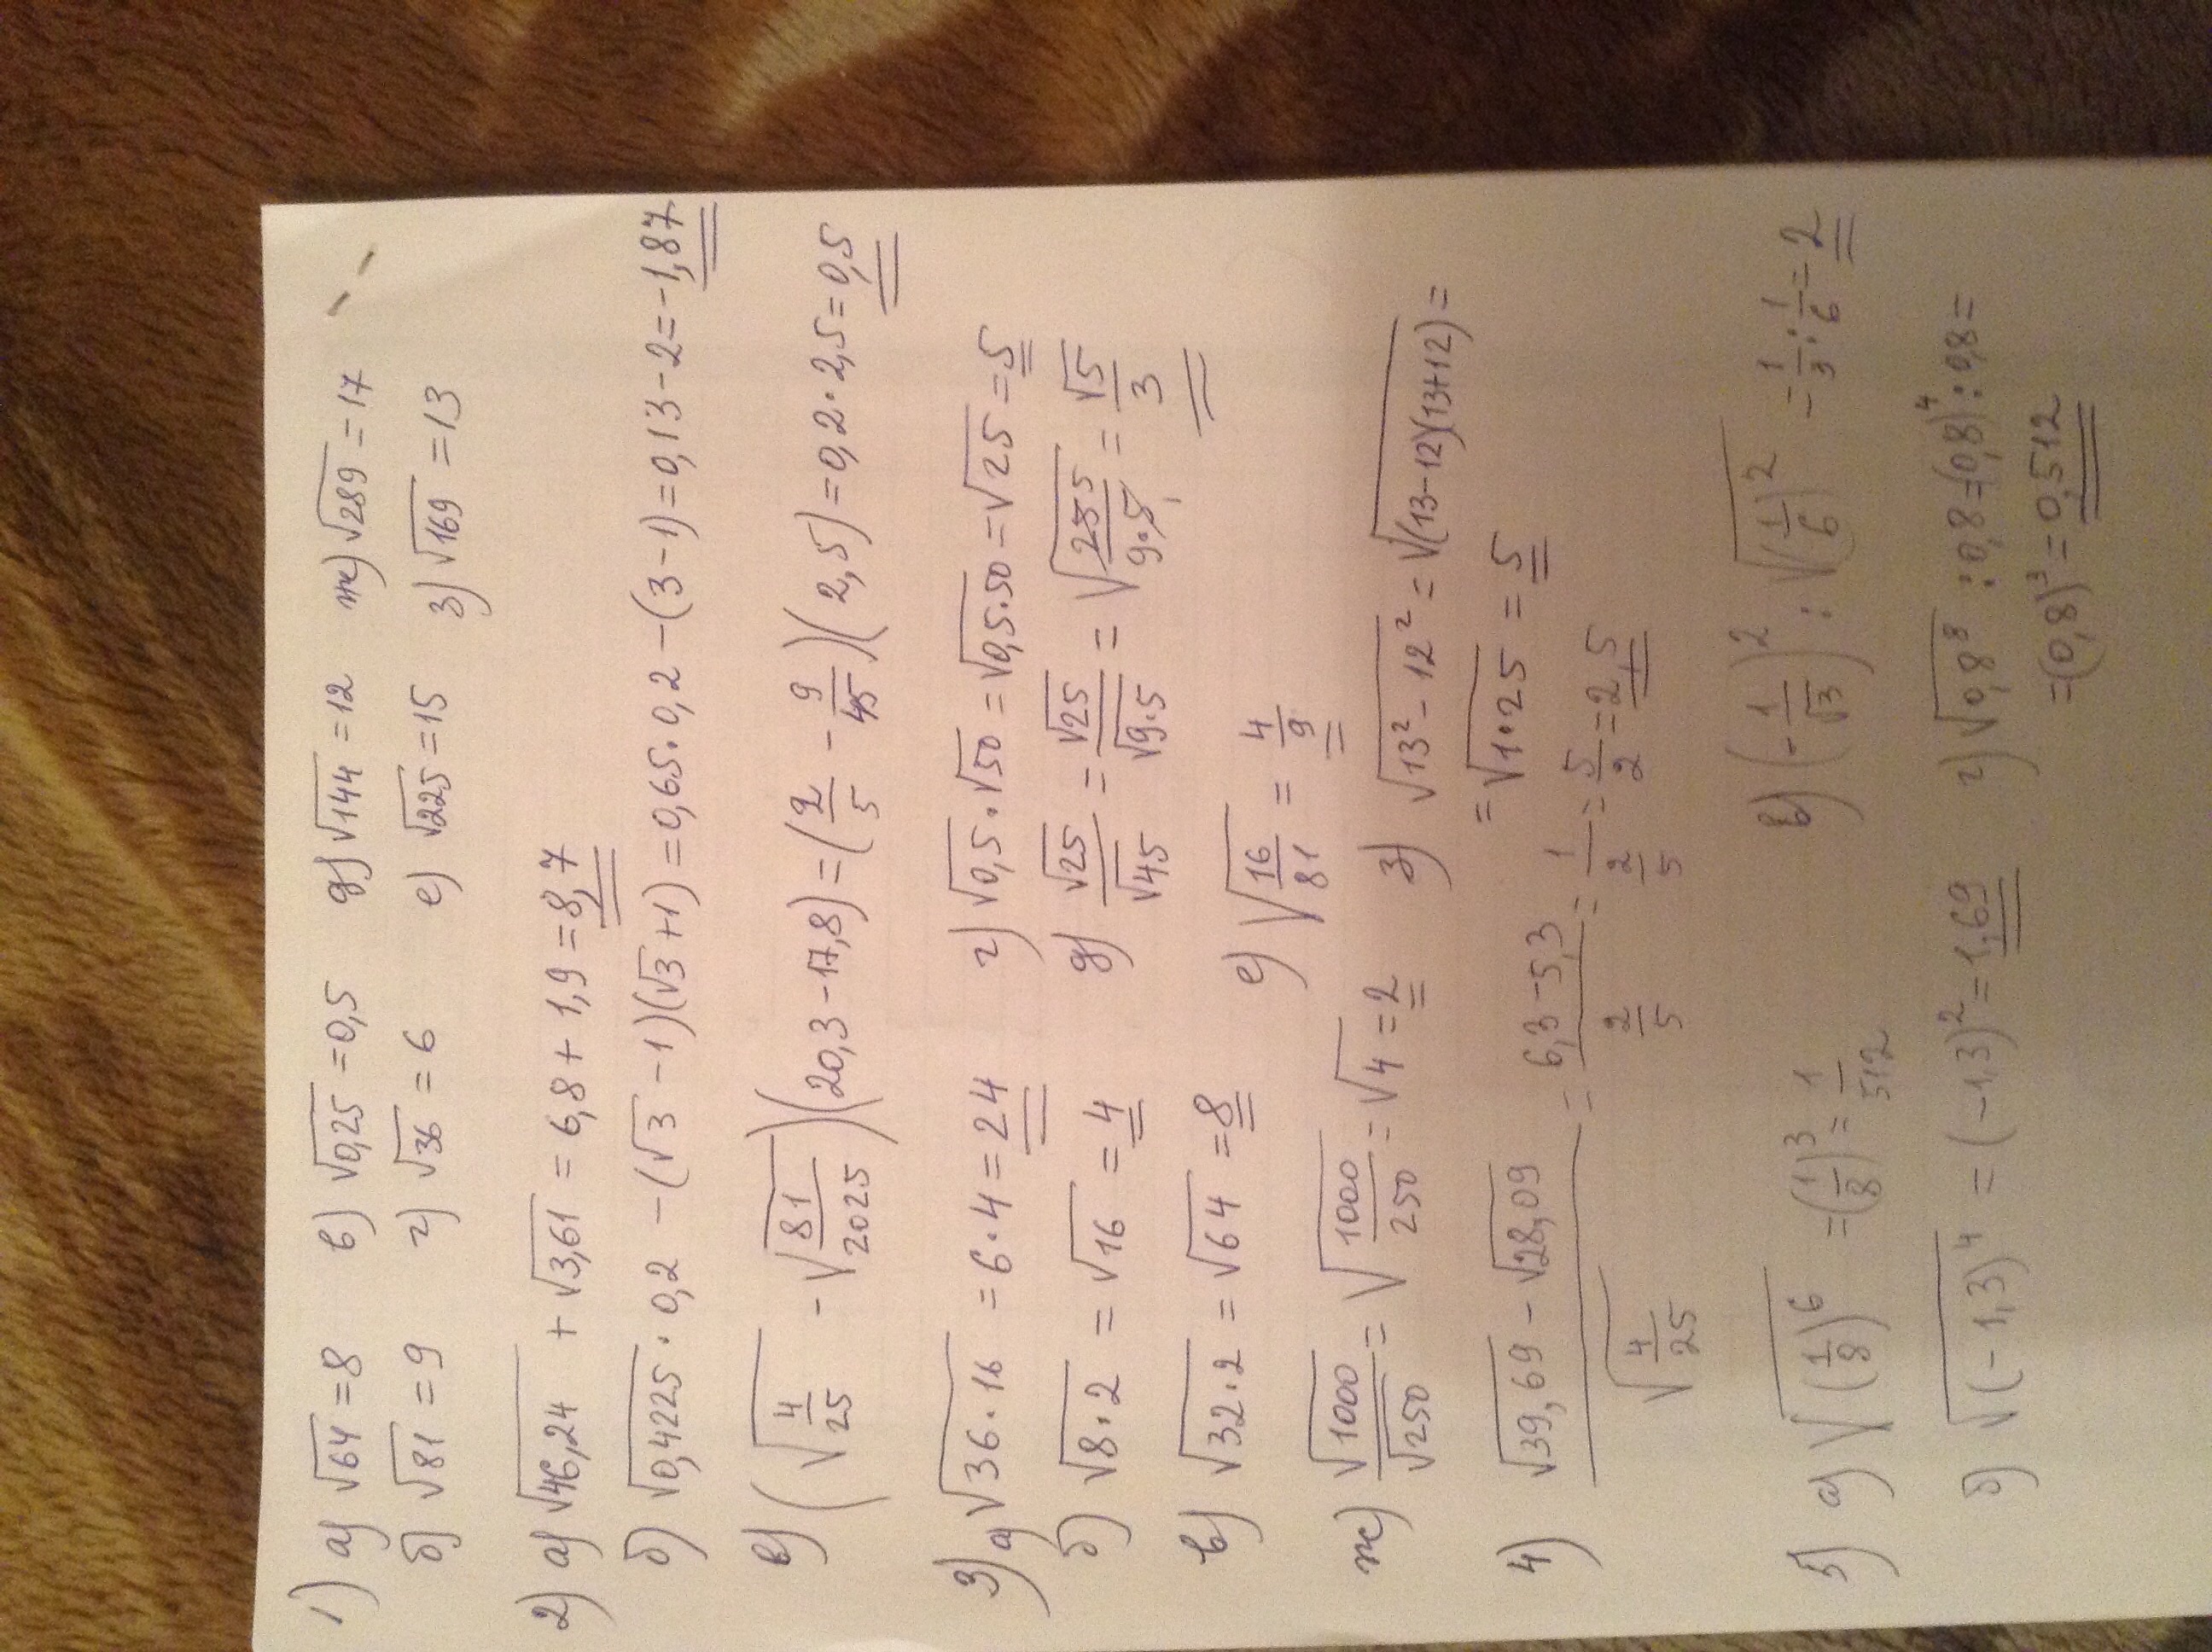 1) а) √64 = 8 в) √0,25 = 0,5 д) √144 = 12 ж) √289 = 17
б) √81 = 9 г) √36 = 6 е) √225 = 15 з) √169 = 13
2) а) √46,24 + √3,61 = 6,8 + 1,9 = 8,7
б) √0,4225 · 0,2 - (√3 - 1)(√3 + 1) = 0,65 · 0,2 - (3 - 1) = 0,13 - 2 = -1,87
в) (√4/25 - √81/2025)(20,3 - 17,8) = (2/5 - 9/45)(2,5) = 0,2 · 2,5 = 0,5
3) а) √36·16 = 6·4 = 24 г) √0,5 · √50 = √0,5·50 = √25 = 5
б) √8·2 = √16 = 4 д) √25/√45 = √25/√9·5 = √255/9·5 = √5/3
в) √32·2 = √64 = 8 е) √16/81 = 4/9
ж) √1000/√250 = √1000/250 = √4 = 2 з) √13² - 12² = √(13-12)(13+12) =
= √1·25 = 5
4) √39,69 - √28,09 / √4/25 = 6,3 - 5,3 / 2/5 = 1 / 2/5 = 5/2 = 2,5
5) а) √(1/8)⁶ = (1/8)³ = 1/512 в) (-1/√3)² : √(1/6)² = 1/3 : 1/6 = 2
б) √(-1,3)⁴ = (-1,3)² = 1,69 г) √0,8⁸ : 0,8 = (0,8)⁴ : 0,8 =
= (0,8)³ = 0,512